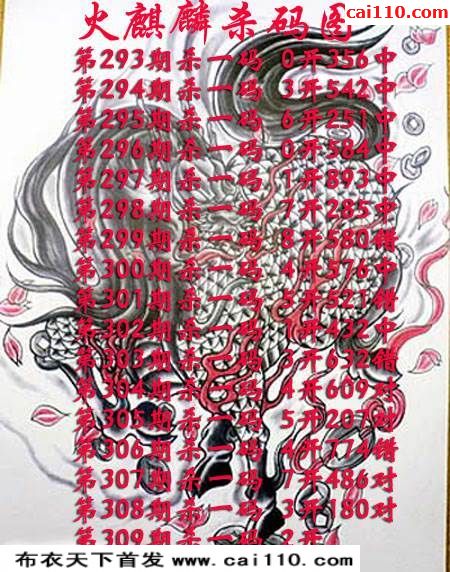 cai110.com
火麒麟杀码图
第293期杀一码 0开356中
第294期杀一码 3开542中
第295期杀一码 6开251中
第296期杀一码 0开584中
第297期杀一码 1开893中
第298期杀一码 7开285中
第299期杀一码 8开580错
第300期杀一码 4开576中
第301期杀一码 5开521错
第302期杀一码 1开432中
第303期杀一码 3开632错
第304期杀一码 4开609对
第305期杀一码 5开207对
第306期杀一码 4开774错
第307期杀一码 1开486对
第308期杀一码 3开180对
第309期杀一码 2开
布衣天下首发 www.cai110.com